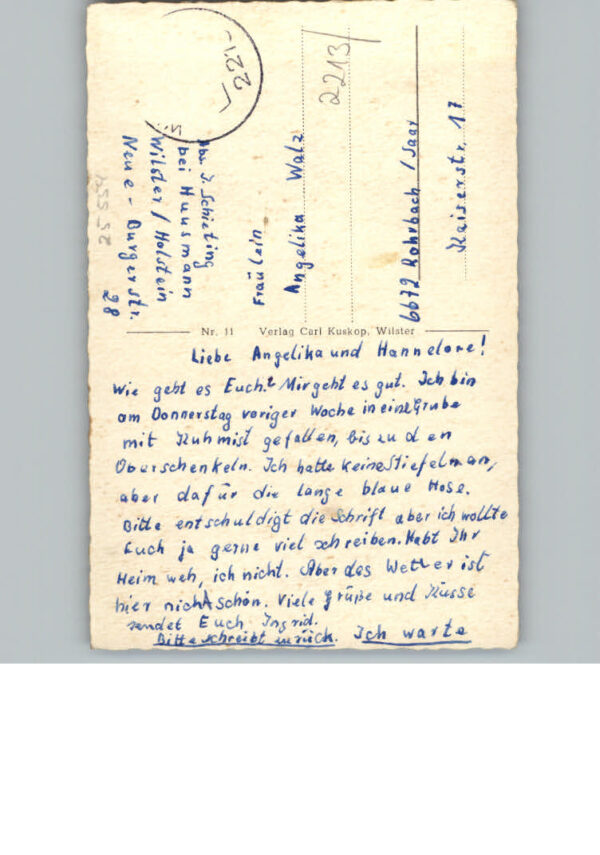 221-
2213/
25 554
Abs. I. Schieting
bei Hausmann
Wilster/Holstein
Neue-Burgerstr.
28
Fräulein
Angelika Walz
6672 Rohrbach/Saar
Kaiserstr. 17
Nr. 11 Verlag Carl Kuskop, Wilster
Liebe Angelika und Hannelore!
Wie geht es Euch? Mir geht es gut. Ich bin
am Donnerstag voriger Woche in eine Grube
mit Kuhmist gefallen, bis zu den
Oberschenkeln. Ich hatte keine Stiefel an,
aber dafür die lange blaue Hose.
Bitte entschuldigt die Schrift aber ich wollte
Euch ja gerne viel schreiben. Habt Ihr
Heim weh, ich nicht. Aber das Wetter ist
hier nicht schön. Viele Grüße und Küsse
sendet Euch Ingrid.
Bitte schreibt zurück. Ich warte